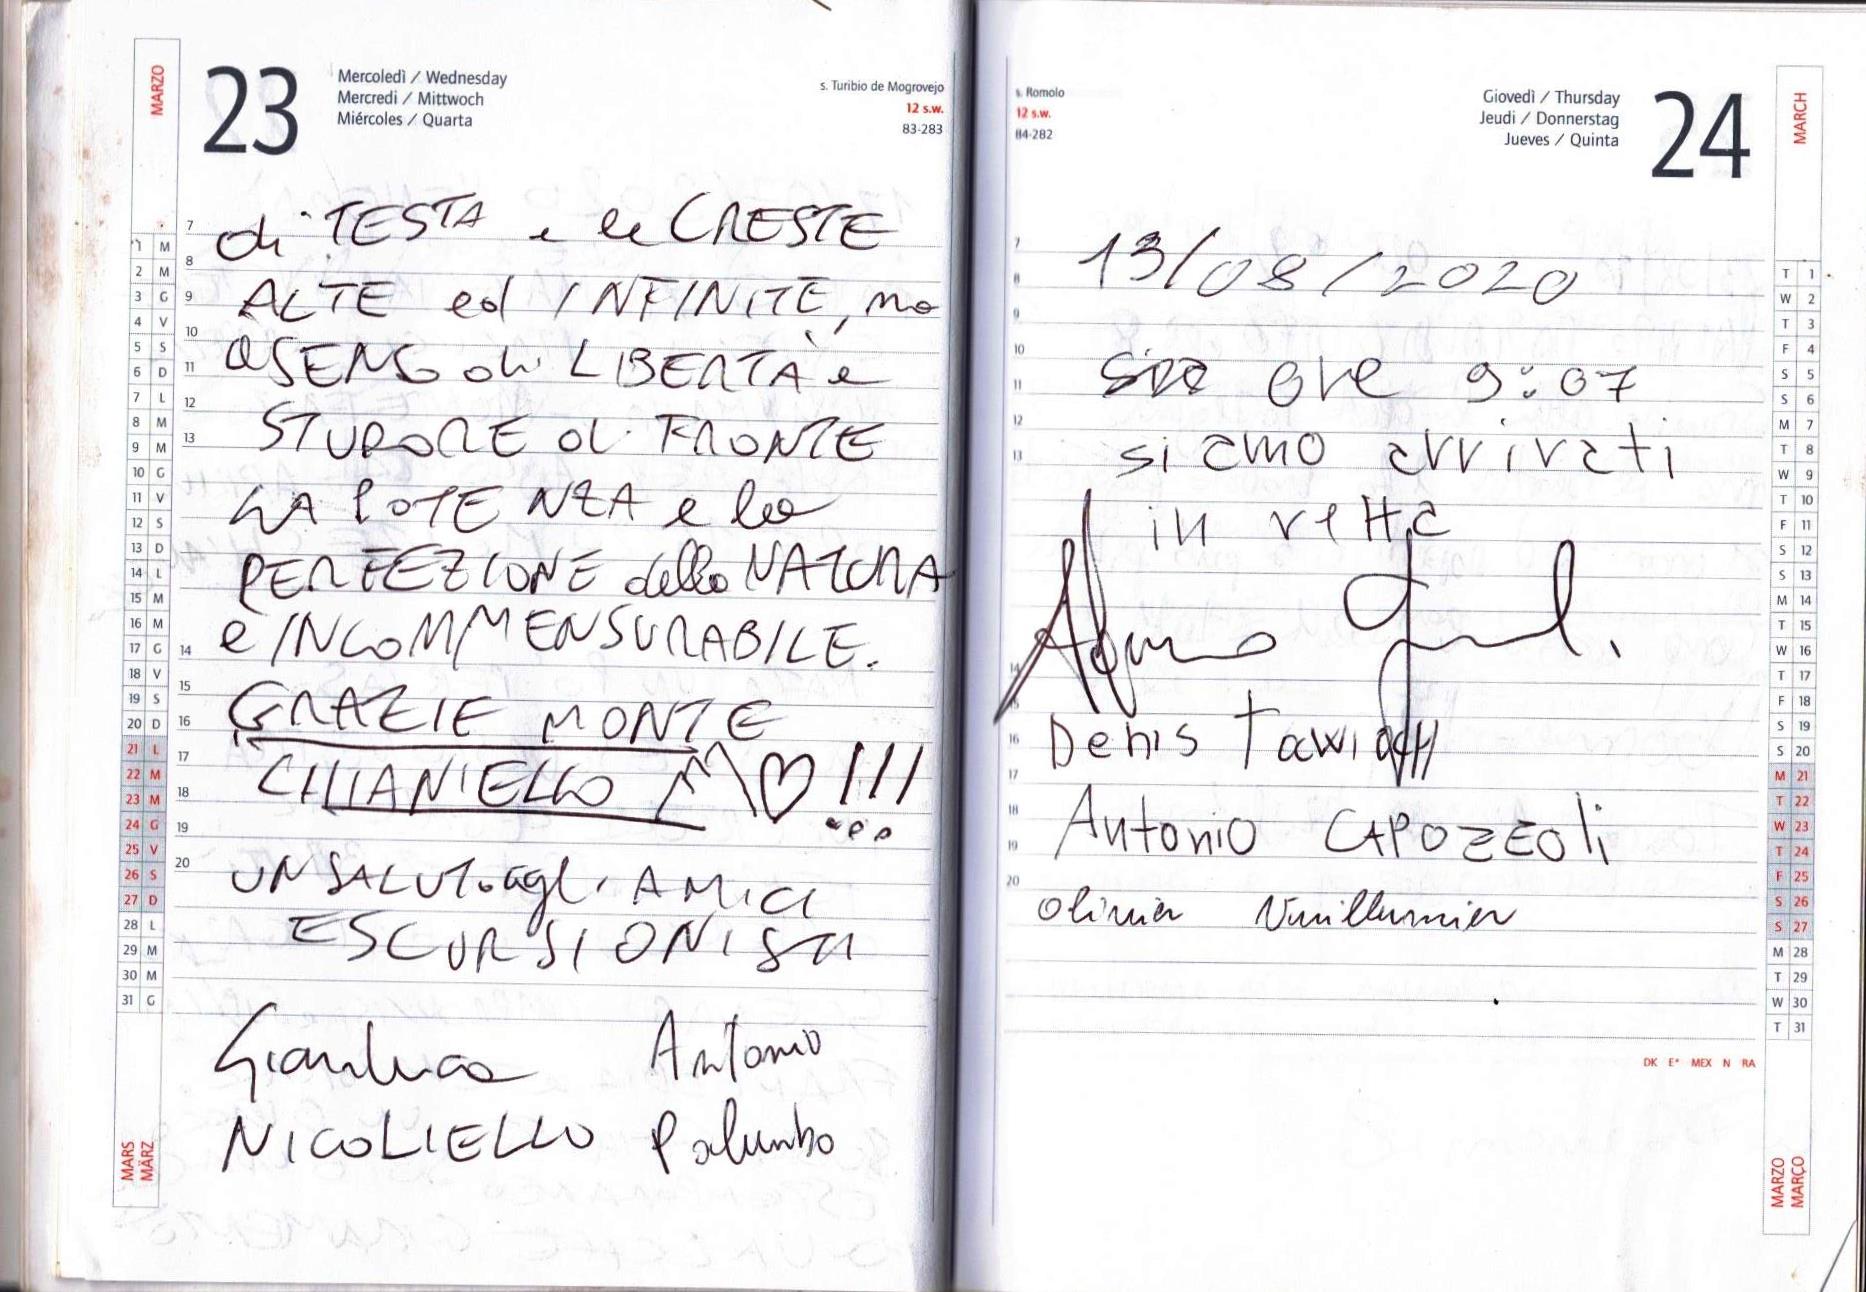 MARZO
23
Mercoledì / Wednesday
Mercredi / Mittwoch
Miércoles / Quarta
s. Turibio de Mogrovejo
12 s.w.
83-283
di TESTA e le CRESTE
ALTE ed INFINITE, no
SENSO di LIBERTÀ e
STUPORE di FRONTE
LA POTENZA e la
PERFEZIONE della NATURA
e INCOMMENSURABILE.
GRAZIE MONTE
CHIANIELLO ♡!!!
...
UN SALUTO agli AMICI
ESCURSIONISTI
Gianluca Antonio
NICOLIELLO Palumbo
7
8
9
10
11
12
13
14
15
16
17
18
19
20
1 M
2 M
3 G
4 V
5 S
6 D
7 L
8 M
9 M
10 G
11 V
12 S
13 D
14 L
15 M
16 M
17 G
18 V
19 S
20 D
21 L
22 M
23 M
24 G
25 V
26 S
27 D
28 L
29 M
30 M
31 G
MARS
MÄRZ
s. Romolo
12 s.w.
84-282
Giovedì / Thursday
Jeudi / Donnerstag
Jueves / Quinta
24
MARCH
13/08/2020
ore 9:07
siamo arrivati
in vetta
Denis Tawiah
Antonio CAPOZZOli
Olivier Vuilleumier
7
8
9
10
11
12
13
14
15
16
17
18
19
20
T 1
W 2
T 3
F 4
S 5
S 6
M 7
T 8
W 9
T 10
F 11
S 12
S 13
M 14
T 15
W 16
T 17
F 18
S 19
S 20
M 21
T 22
W 23
T 24
F 25
S 26
S 27
M 28
T 29
W 30
T 31
DK E* MEX N RA
MARZO
MARÇO